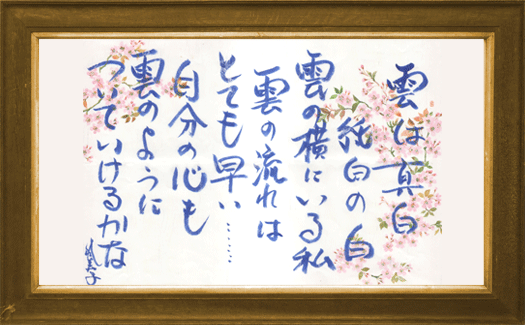 雲は真白
純白の白
雲の横にいる私
雲の流れは
とても早い……
自分の心も
雲のように
ついていけるかな